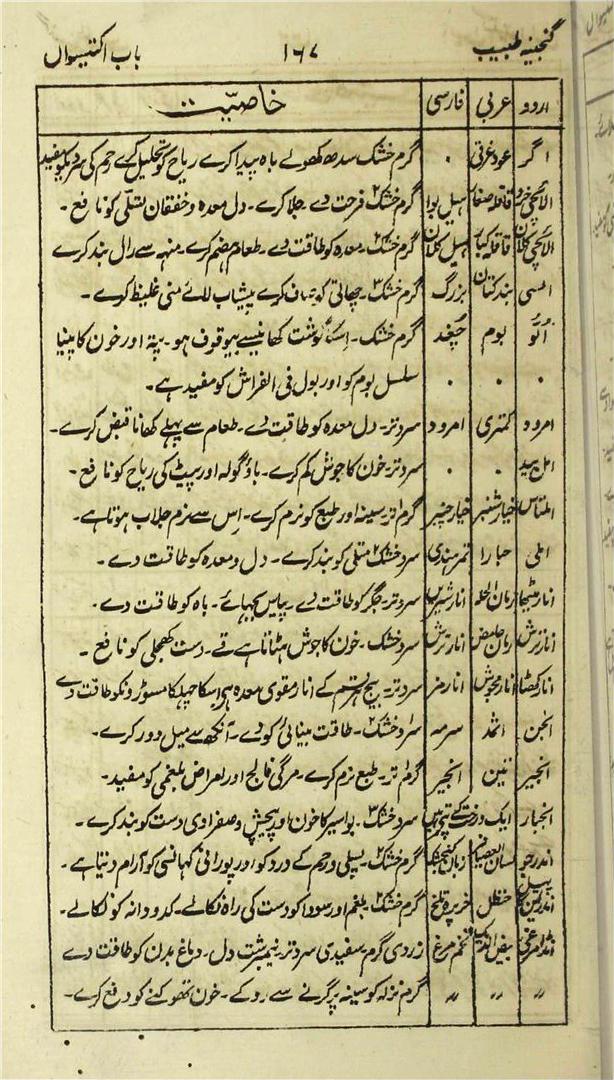 گنجینہ طبیب ۱۶۷ باب اکتیسواں
اردو عربی فارسی خاصیّت
اگر عود غرقی ۰ گرم خشک سدھ کھولے باہ پیدا کرے ریاح کو تحلیل کرے رحم کی سردی کو مفید
الائچی خرد قاقلہ صغار ہیل بوا گرم خشک۲ فرحت دے جلا کرے۔ دل معدہ و خفقان متلی کو نافع۔
الائچی کلاں قاقلہ کبار ہیل کلاں گرم خشک۲۔ معدہ کو طاقت دے۔ طعام ہضم کرے۔ منہ سے رال بند کرے
السی بذر کتان بزرگ گرم خشک۳۔ چھاتی کو صاف کرے پیشاب لائے منی غلیظ کرے۔
اُلّو بوم چغد گرم خشک۔ اسکا گوشت کھانیسے بیوقوف ہو۔ پتہ اور خون کا پینا
۰ ۰ ۰ سلسل بوم کو اور بول فی الفراش کو مفید ہے۔
امرود کمثری امرود سرد تر۔ دل معدہ کو طاقت دے۔ طعام سے پہلے کھانا قبض کرے۔
امل بید ۰ ۰ سرد تر۔ خون کا جوش کم کرے۔ باؤ گولہ اور پیٹ کی ریاح کو نافع۔
املتاس خیار شنبر خیار چنبر گرم تر۔ سینہ اور طبع کو نرم کرے۔ اس سے نرم جلاب ہوتا ہے۔
املی حبارا تمر ہندی سرد خشک۲ متلی کو بند کرے۔ دل و معدہ کو طاقت دے۔
انار میٹھا رمان الحلو انار شیریں سرد تر۔ جگر کو طاقت دے۔ پیاس بجھائے۔ باہ کو طاقت دے۔
انار ترش رمان حامض انار ترش سرد خشک۔ خون کا جوش ہٹاتا ہے قے۔ دست کھجلی کو نافع۔
انار کھٹا انار میخوش انار مز سرد تر۔ بیچ قسم کے انار مقوی معدہ ہیں اسکا چھلکا مسوڑونکو طاقت دے
انجن اثمد سرمہ سرد خشک۲۔ طاقت بینائی کو دے۔ آنکھ سے میل دور کرے۔
انجیر تین انجیر گرم تر۔ طبع نرم کرے۔ مرگی فالج اور امراض بلغمی کو مفید۔
انجبار ایک درخت کے پتے ہیں سرد خشک۳۔ بواسیر کا خون اور پیچش و صفراوی دست کو بند کرے۔
اندرجو لسان العصافیر زبان کنجشک گرم خشک۲۔ پسلی و رحم کے درد کو اور پورانی کھانسی کو آرام دیتا ہے۔
اندراین کا پھل حنظل خربزہ تلخ گرم خشک۲۔ بلغم اور سودا کو دست کی راہ نکالے۔ کدو دانہ کو نکالے۔
انڈا مرغی بیض الدیک تخم مرغ زردی گرم سفیدی سرد تر۔ نیمبرشت دل۔ دماغ بدن کو طاقت دے
〃 〃 〃 گرم نزلہ کو سینہ پر گرنے سے روکے۔ خون تھوکنے کو دفع کرے۔